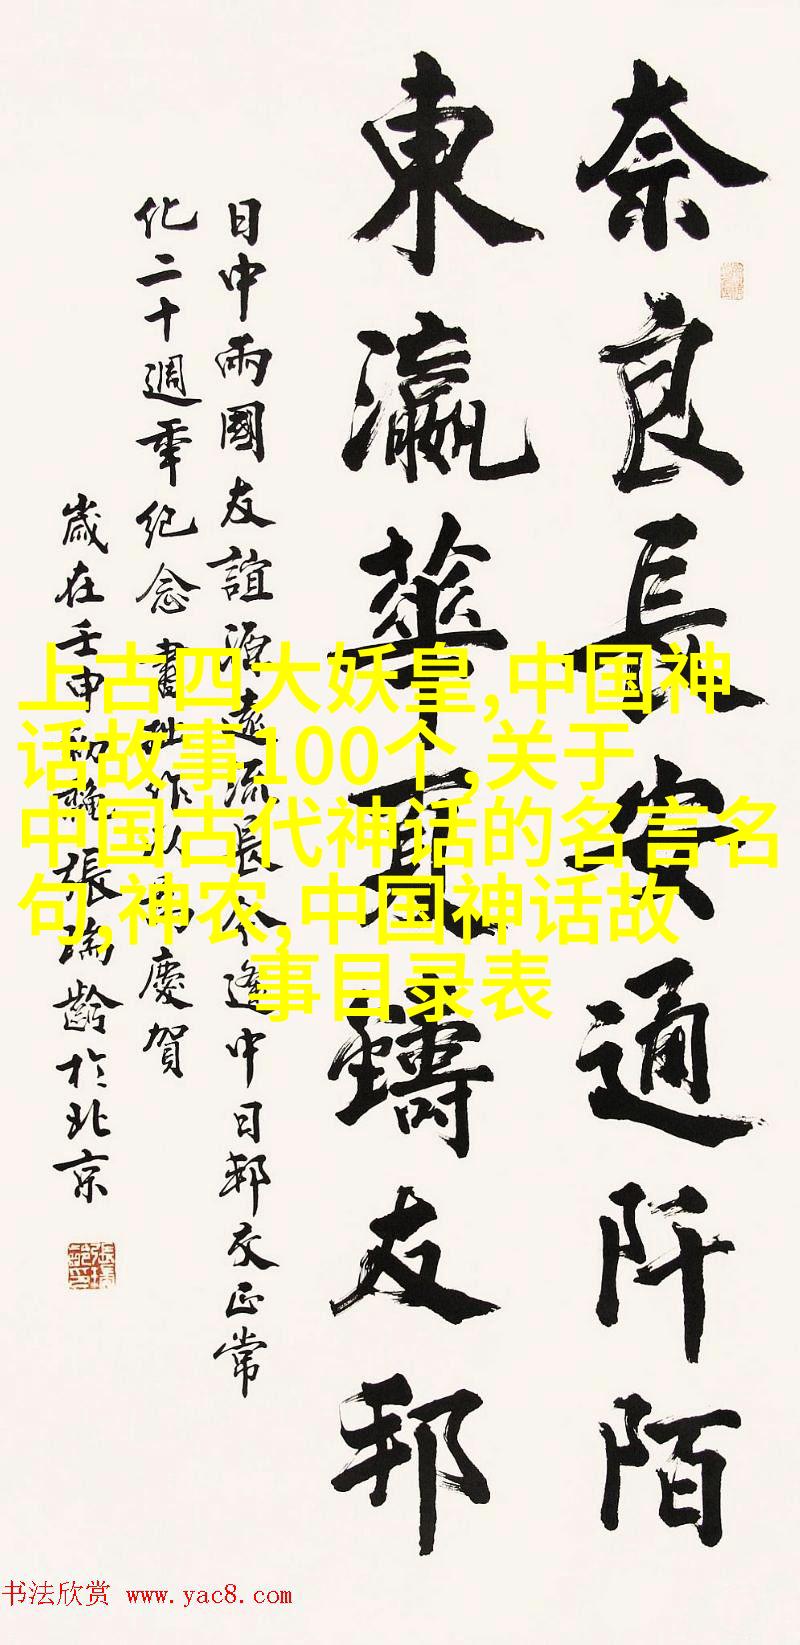 奈良長安通阡陌
東瀛華夏鑄友邦
日中兩國友誼源遠流長今逢中日邦交正常
化二十週年紀念書拙作以慶賀
歲在壬申初穐張瑞齡於北京
上古四大妖皇,中国神
话故事100个,关于
中国古代神话的名言名
句,神农,中国神话故
事目录表
书法欣赏 www.yac8.com